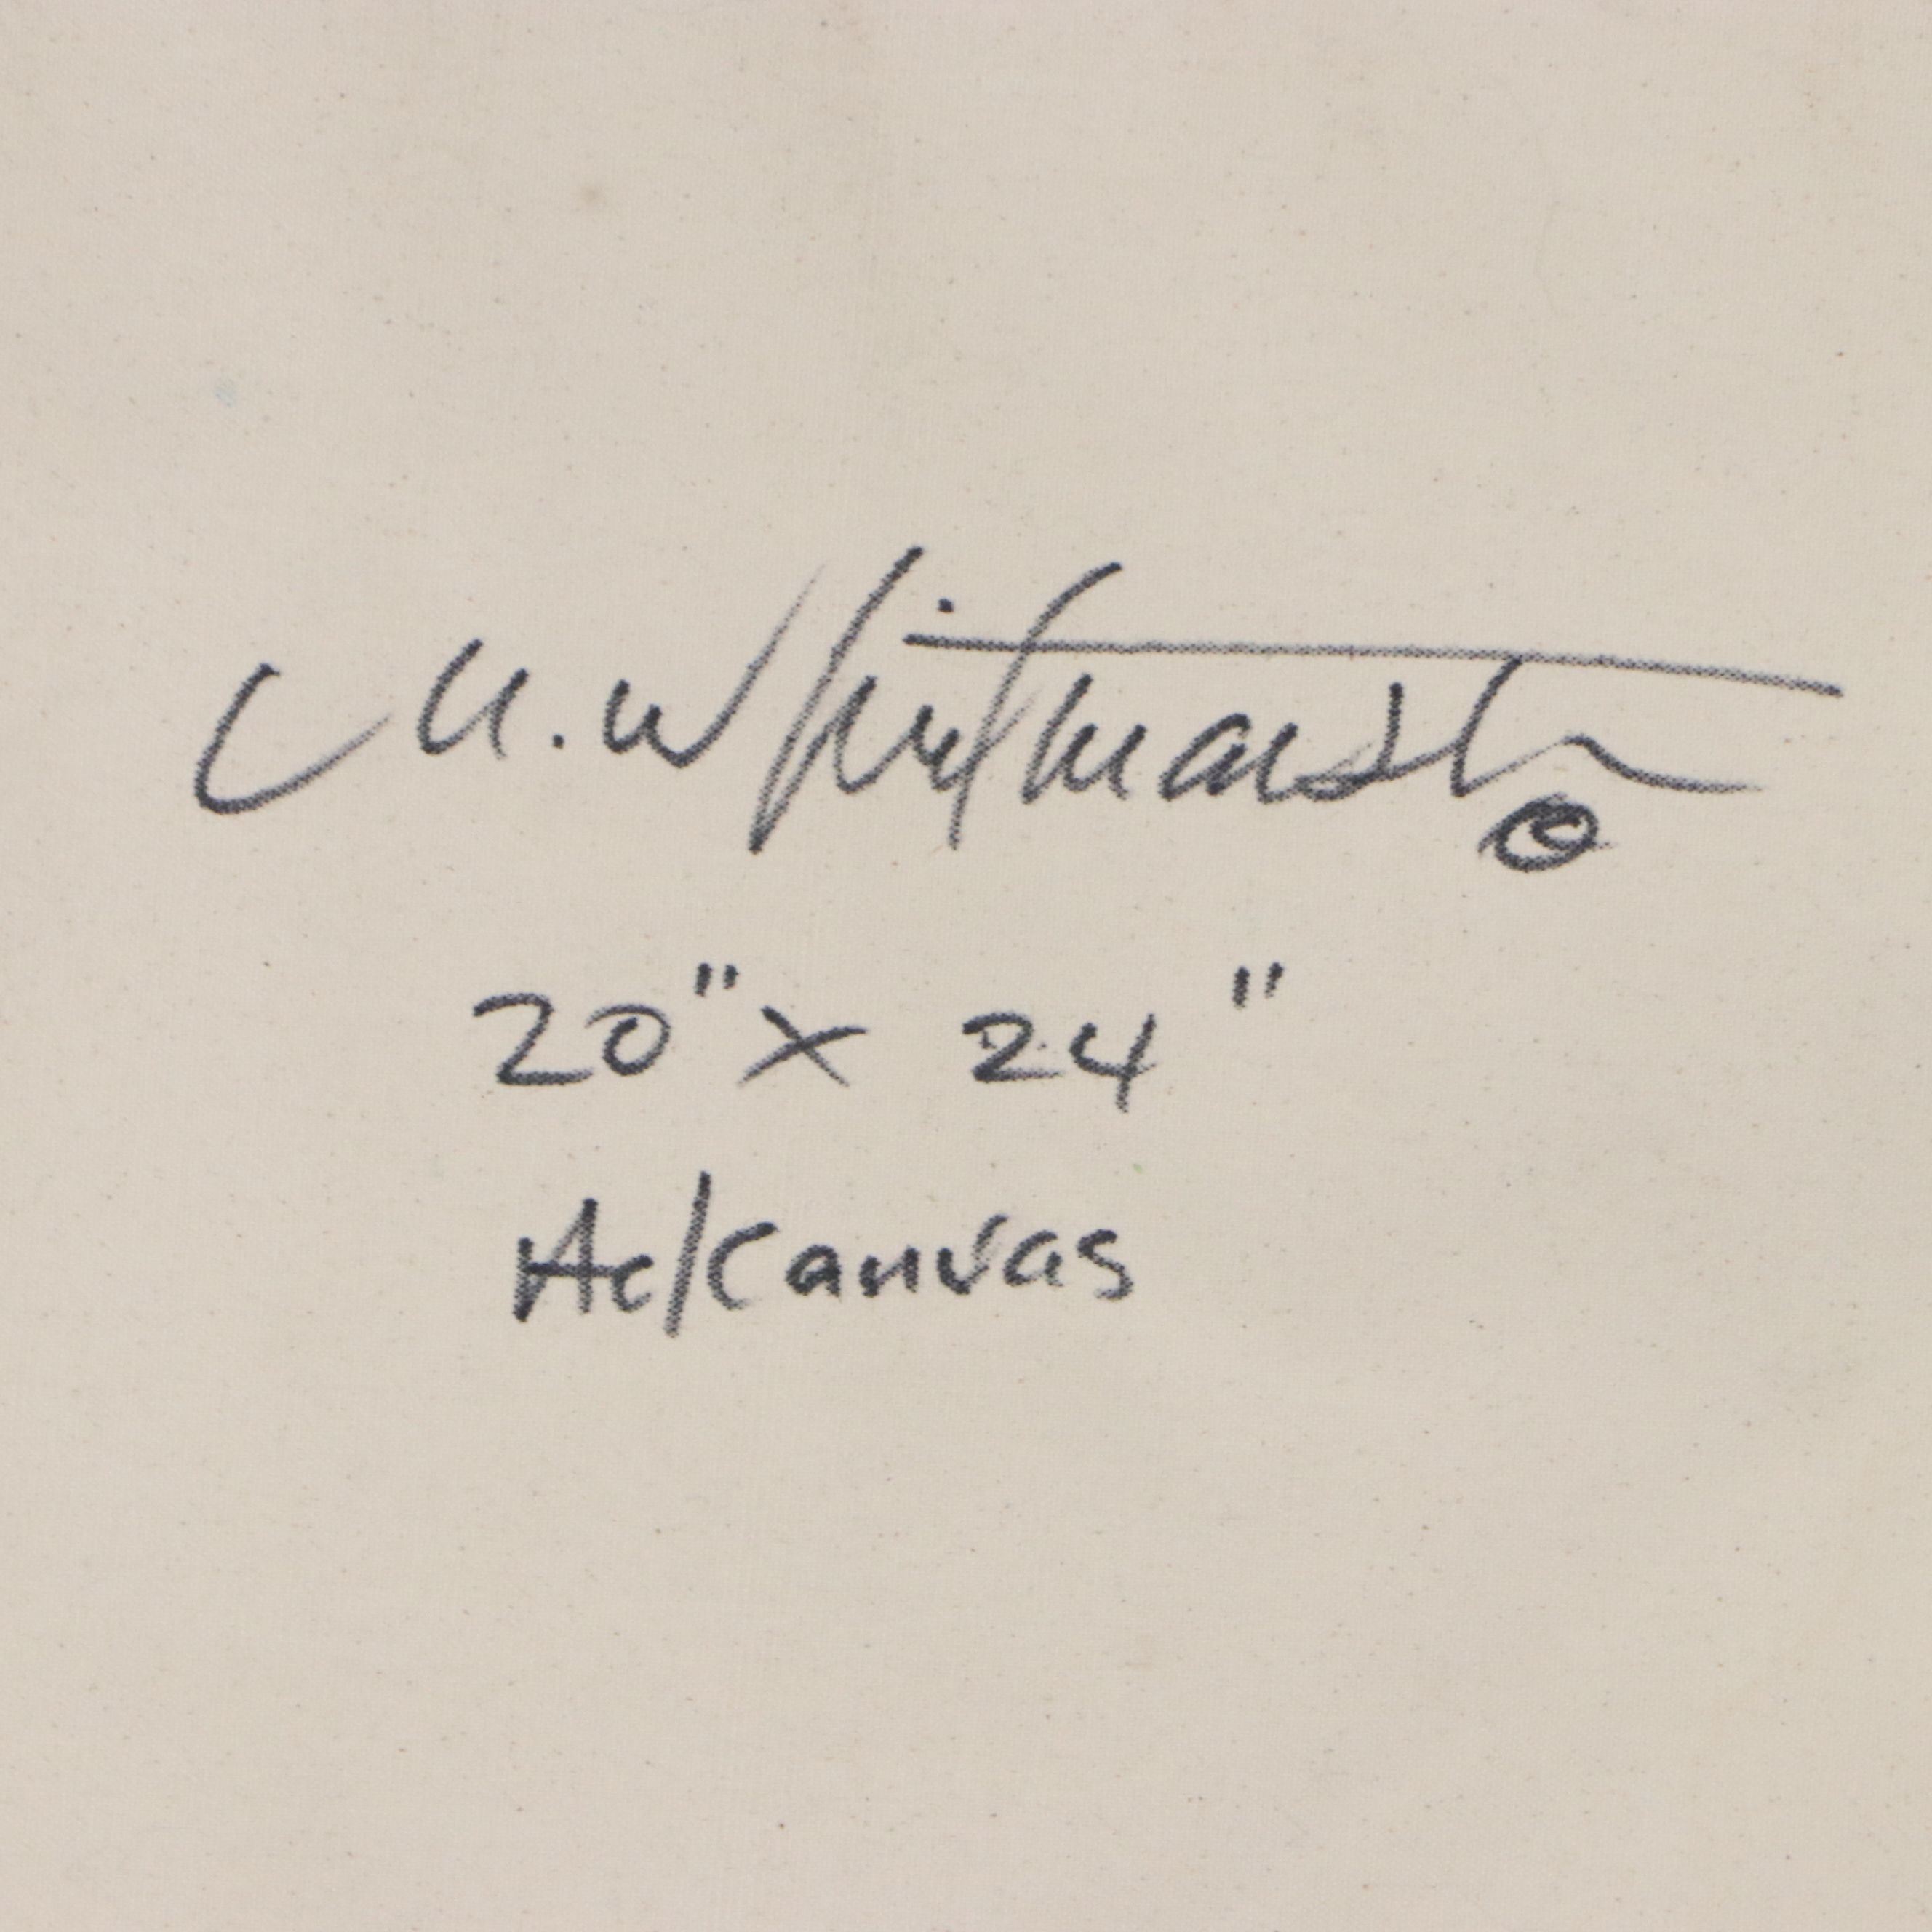 M. Whitmarsh ©
20" x 24"
Ac/Canvas